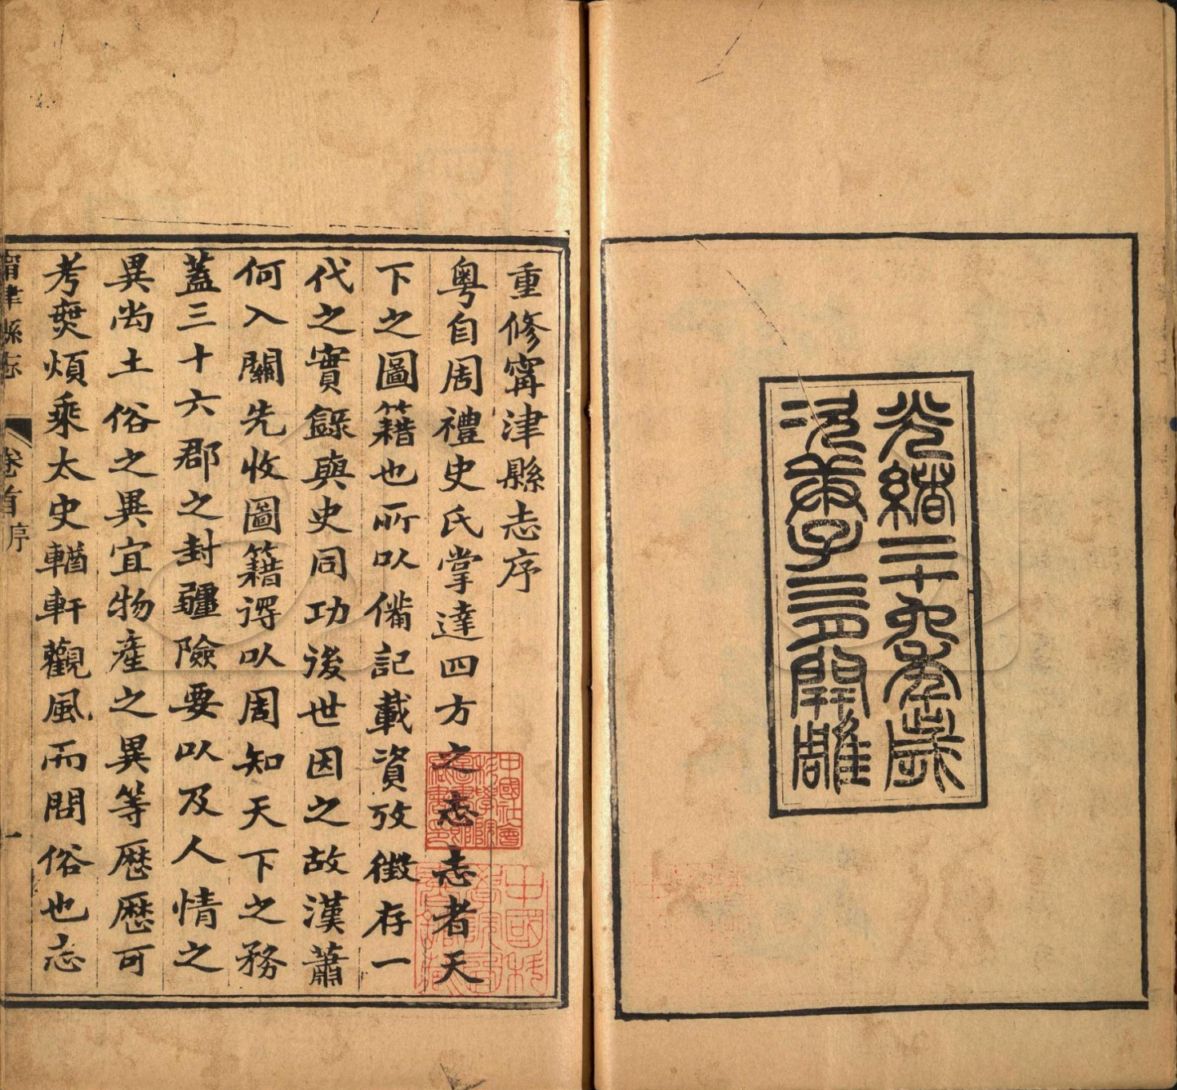 光緒二十六年歲
次庚子三月開雕
重修甯津縣志序
粵自周禮史氏掌達四方之志志者天
下之圖籍也所以備記載資攷徵存一
代之實錄與史同功後世因之故漢蕭
何入關先收圖籍得以周知天下之務
蓋三十六郡之封疆險要以及人情之
異尚土俗之異宜物產之異等歷歷可
考無煩乘太史輶軒觀風而問俗也志
甯津縣志 卷首 序 一
中國社會
科學院
中國科
學院圖
書館藏